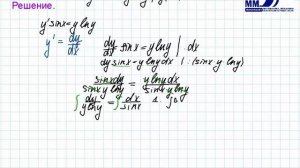 Решение.
ММ
y' sinx = y lny
y' = dy/dx   dy/dx sinx = y lny | dx
dy sinx = y lny dx | : (sinx y lny)
sinx dy / sinx y lny = y lny dx / sinx y lny
∫ dy / y lny = ∫ dx / sinx